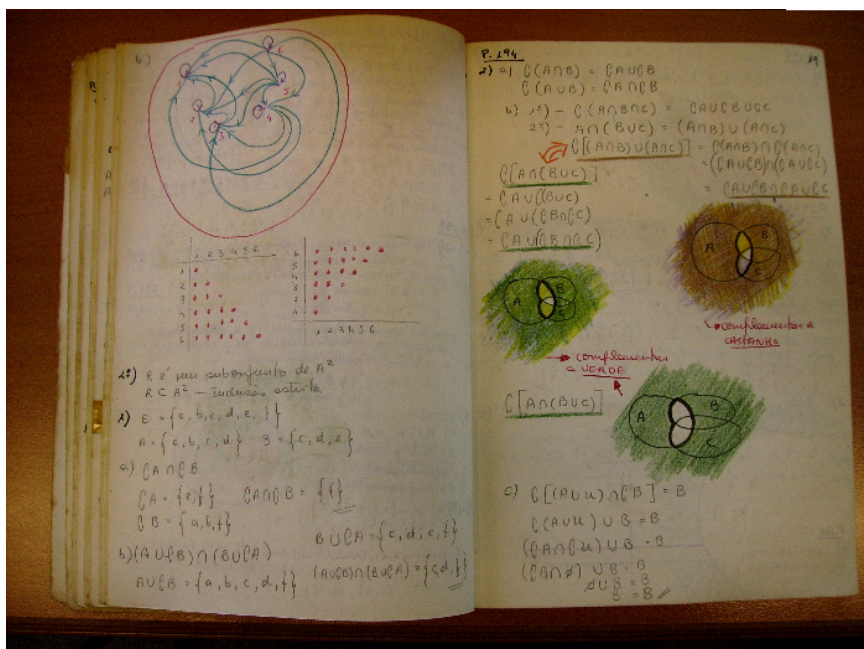 b)
6
1
5
2
3
4
1 2 3 4 5 6
1
2
3
4
5
6
6
5
4
3
2
1
1 2 3 4 5 6
2º) R é um subconjunto de A²
R ⊂ A² — inclusão estrita
1) E = {a, b, c, d, e, f}
A = {a, b, c, d} B = {c, d, e}
a) ∁A ∩ ∁B
∁A = {e, f} ∁A ∩ ∁B = {f}
∁B = {a, b, f}
B ∪ ∁A = {c, d, e, f}
b) (A ∪ ∁B) ∩ (B ∪ ∁A)
A ∪ ∁B = {a, b, c, d, f} (A ∪ ∁B) ∩ (B ∪ ∁A) = {c, d, f}
P. 194
19
2) a) ∁(A ∩ B) = ∁A ∪ ∁B
∁(A ∪ B) = ∁A ∩ ∁B
b) 1º) - ∁(A ∩ B ∩ C) = ∁A ∪ ∁B ∪ ∁C
2º) - A ∩ (B ∪ C) = (A ∩ B) ∪ (A ∩ C)
∁[(A ∩ B) ∪ (A ∩ C)] = ∁(A ∩ B) ∩ ∁(A ∩ C)
= (∁A ∪ ∁B) ∩ (∁A ∪ ∁C)
= ∁A ∪ ∁B ∩ ∁A ∪ ∁C
∁[A ∩ (B ∪ C)]
= ∁A ∪ ∁(B ∪ C)
= ∁A ∪ (∁B ∩ ∁C)
= ∁A ∪ (∁B ∩ ∁C)
A B C
A B C
complementar a
CASTANHO
complementar
a VERDE
∁[A ∩ (B ∪ C)]
A B C
c) ∁[(A ∪ U) ∩ ∁B] = B
∁(A ∪ U) ∪ B = B
(∁A ∩ ∁U) ∪ B = B
(∁A ∩ ∅) ∪ B = B
∅ ∪ B = B
B = B